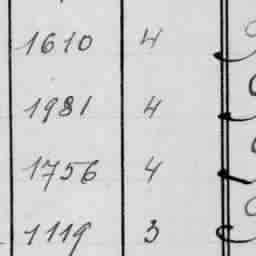 1610 4
1981 4
1756 4
1119 3